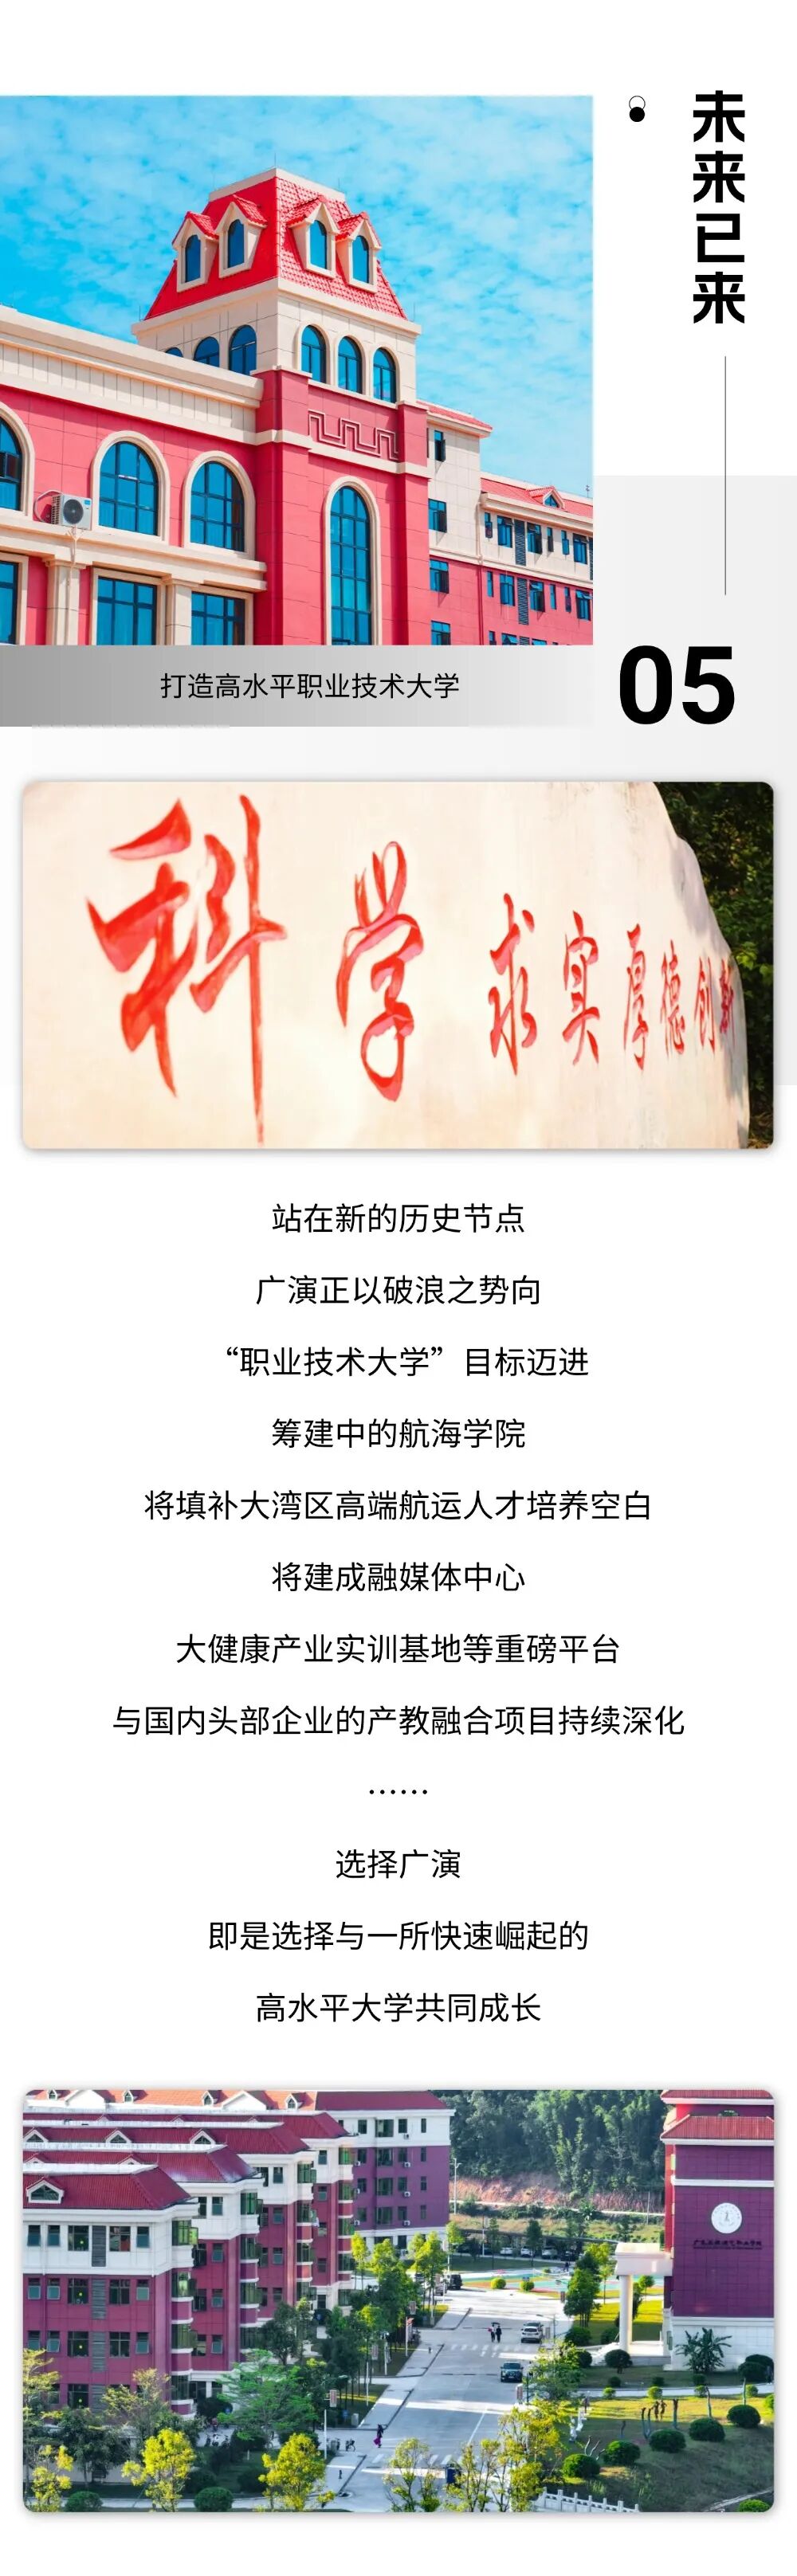 未来已来
05
打造高水平职业技术大学
科学 求实 厚德 创新
站在新的历史节点
广演正以破浪之势向
“职业技术大学”目标迈进
筹建中的航海学院
将填补大湾区高端航运人才培养空白
将建成融媒体中心
大健康产业实训基地等重磅平台
与国内头部企业的产教融合项目持续深化
……
选择广演
即是选择与一所快速崛起的
高水平大学共同成长